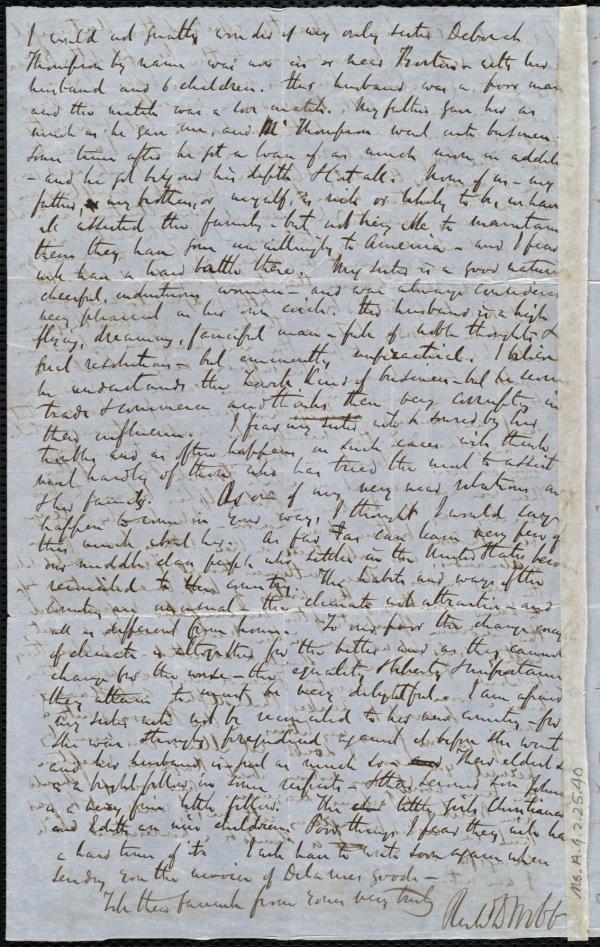 I would not greatly wonder if my only sister Deborah
Thompson by name was now in or near Boston - with her
husband and 6 children. Her husband was a poor man
and the match was a love match. My father gave her as
much as he gave me, and Mr Thompson went into business.
Some time after he got a loan of as much more in addition
- and he got beyond his depth & lost all. None of us - my
father, my brother, or myself, is rich or likely to be, we have
all assisted the family - but not being able to maintain
them they have gone unwillingly to America - and I fear
will have a hard battle there. My sister is a good natured
cheerful, industrious woman - and was always considered
very pleasant in her own circle. Her husband is a high
flying, dreamy, fanciful man - full of noble thoughts &
good resolutions - but eminently unpractical. I believe
he understands the hardware kind of business - but he
trade & commerce and thinks them very corrupting in
their influence. I fear my sister will be soured by her
troubles and as often happens in such cases will think
most hardly of those who has tried the most to assist
& her family. As one of my very near relations may
happen to come in your way, I thought I would say
this much about her. As far as I can learn very few of
our middle class people who settle in the United States become
reconciled to the country. The habits and ways of the
country are unusual - the climate not attractive - and
all is different from home. To our poor the change even
of climate is altogether for the better and as they cannot
change for the worse - the equality & liberty & importance
they attain to must be very delightful. I am afraid
my sister will not be reconciled to her new country - for
she was strongly prejudiced against it before she went
and her husband is just as much so - Their eldest
is a bright fellow in some respects - & the second son John
is a very fine little fellow. The little girls Christiana
and Edith are nice children. Poor things I fear they will have
a hard time of it. I will have to write soon again when
sending you the invoice of Delarues goods -
Till then farewell from yours very truly
Richd D Webb
Ms. A.9.2.25.40